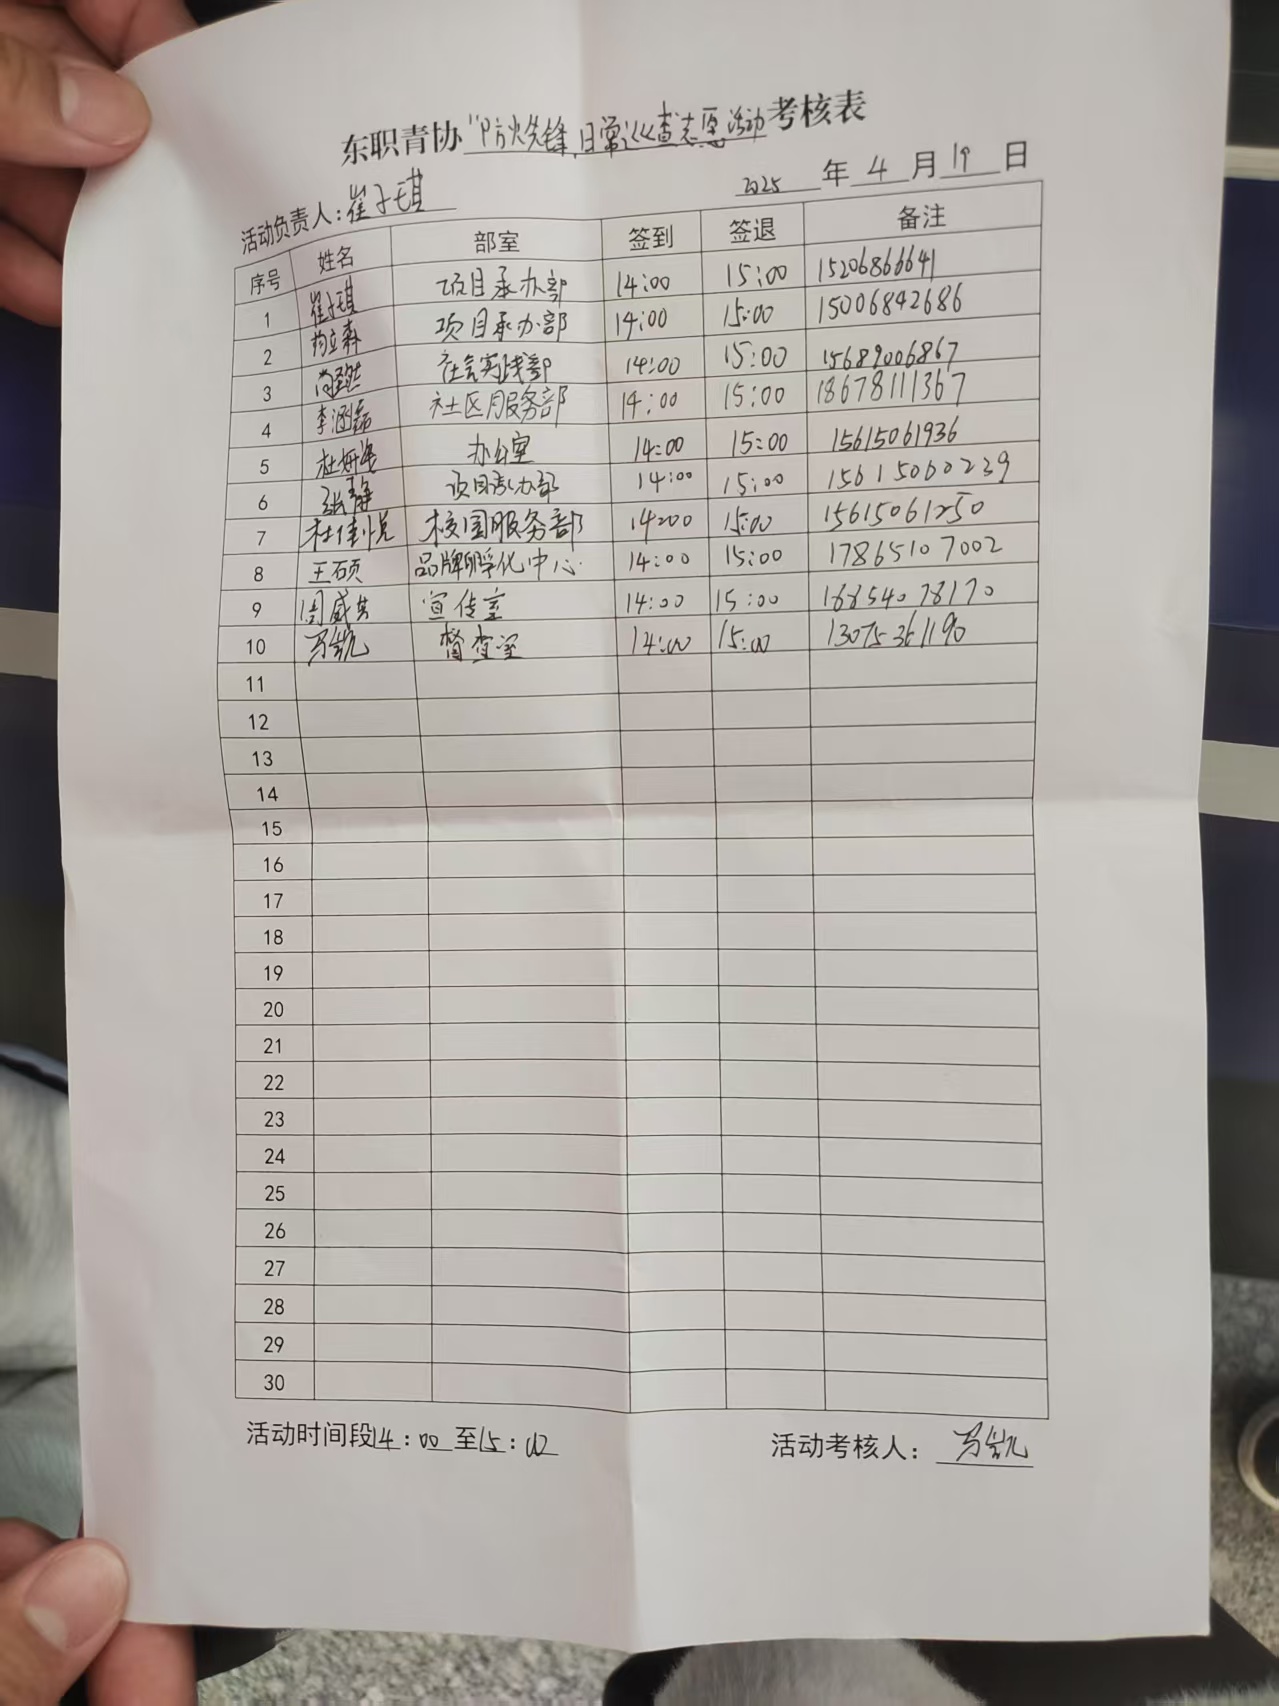 东职青协"防火先锋,日常巡查志愿活动考核表
2025年4月19日
活动负责人:崔子琪
序号 姓名 部室 签到 签退 备注
1 崔子琪 项目承办部 14:00 15:00 15206866641
2 项目承办部 14:00 15:00 15006842686
3 社会实践部 14:00 15:00 15689006867
4 李涵磊 社区服务部 14:00 15:00 18678111367
5 办公室 14:00 15:00 15615061936
6 张静 项目承办部 14:00 15:00 15615060239
7 杜佳悦 校园服务部 14:00 15:00 15615061250
8 王硕 品牌孵化中心 14:00 15:00 17865107002
9 宣传室 14:00 15:00
10 马凯 督查室 14:00 15:00 13075361190
11
12
13
14
15
16
17
18
19
20
21
22
23
24
25
26
27
28
29
30
活动时间段14:00至15:00 活动考核人:马凯